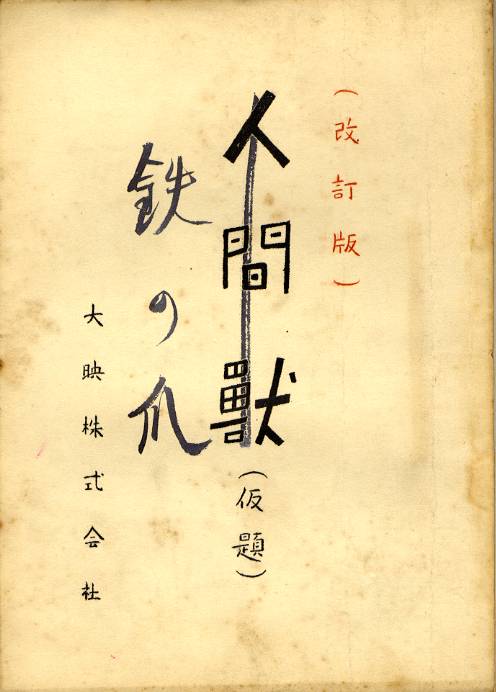 (改訂版)
人間獸(仮題)
鉄の爪
大映株式会社